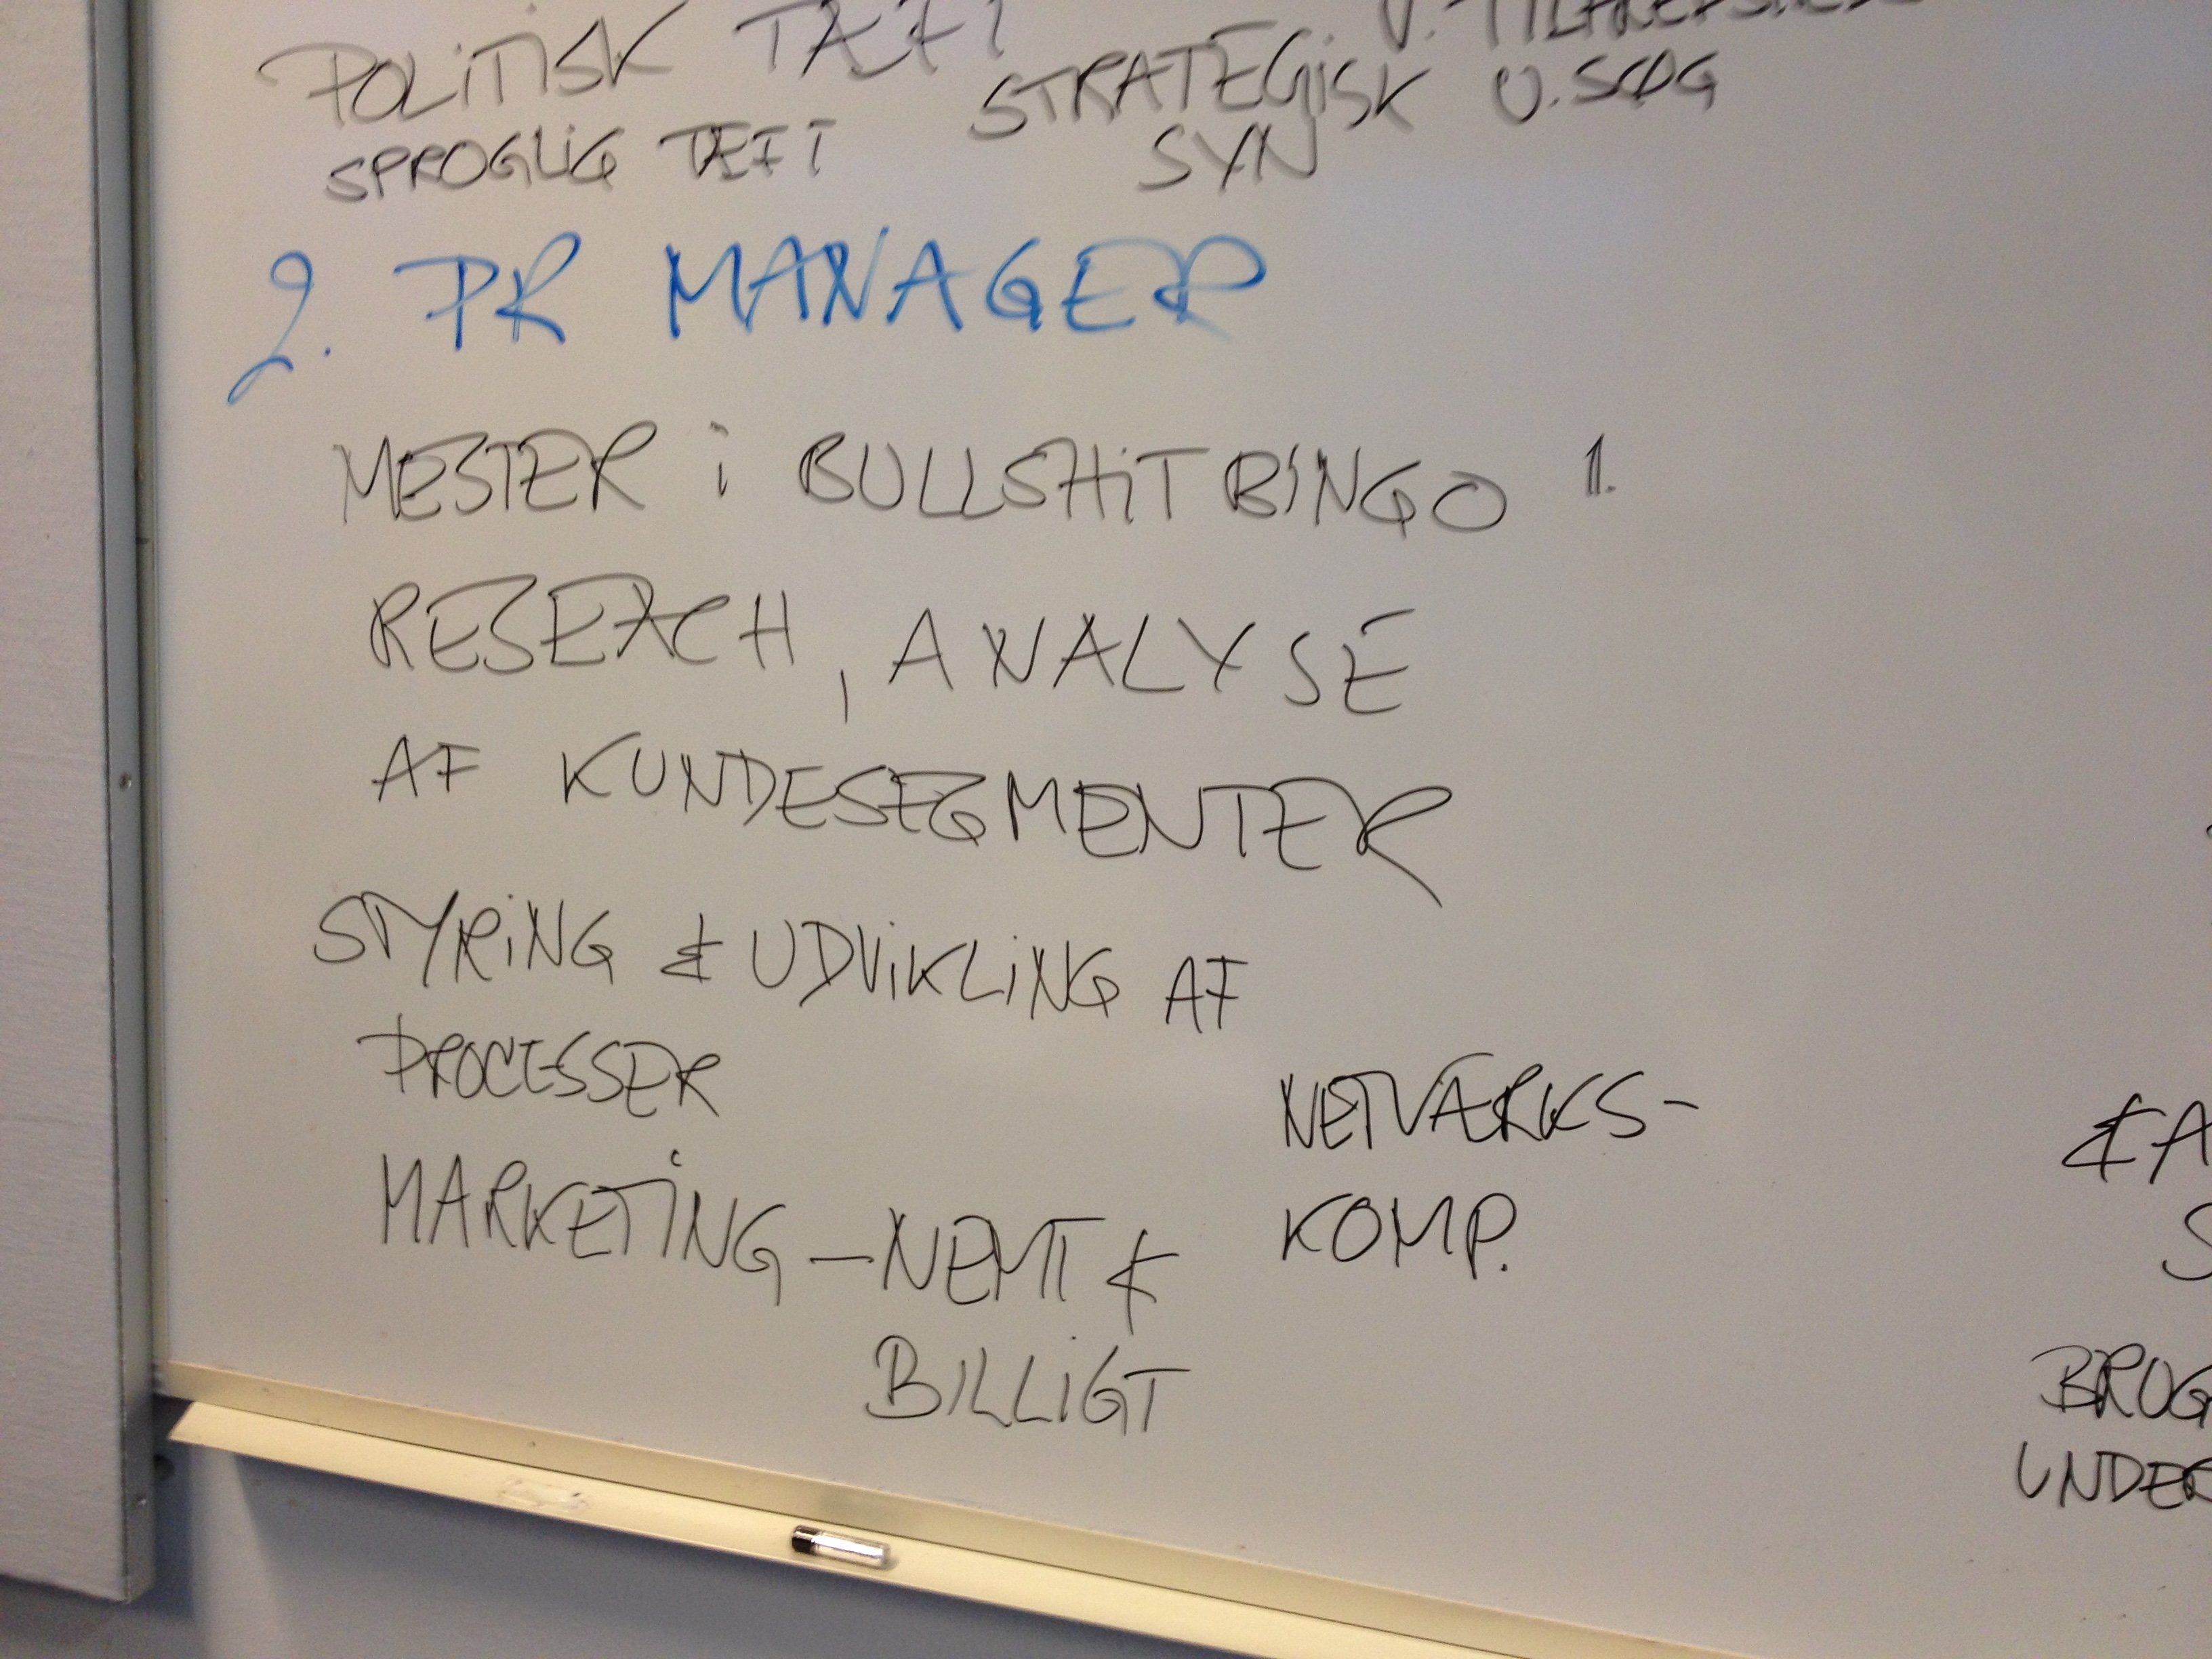 POLITISK TÆFT
STRATEGISK
SPROGLIG TÆFT
SYN
2. PR MANAGER
MESTER i BULLSHIT BINGO 1.
RESEACH, ANALYSE
AF KUNDESEGMENTER
STYRING & UDVIKLING AF
PROCESSER
NETVÆRKS-
KOMP.
MARKETING - NEMT &
BILLIGT
& A
S
BROG
UNDER